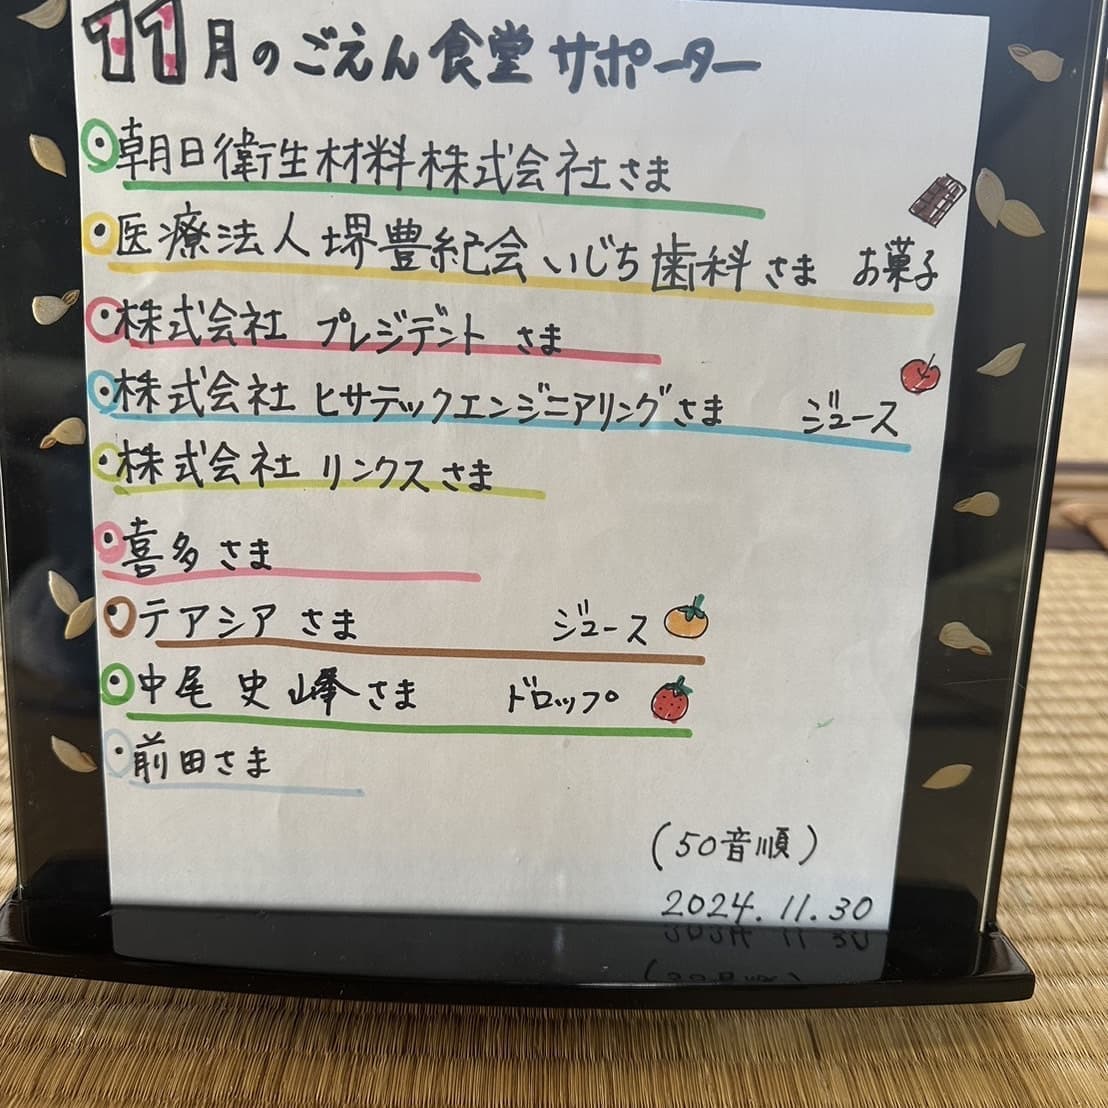 11月のごえん食堂サポーター
朝日衛生材料株式会社さま
医療法人堺豊紀会いじち歯科さま お菓子
株式会社 プレジデント さま
株式会社 ヒサテックエンジニアリングさま ジュース
株式会社 リンクスさま
喜多さま
テアシア さま ジュース
中尾 史峰さま ドロップ
前田さま
(50音順)
2024.11.30